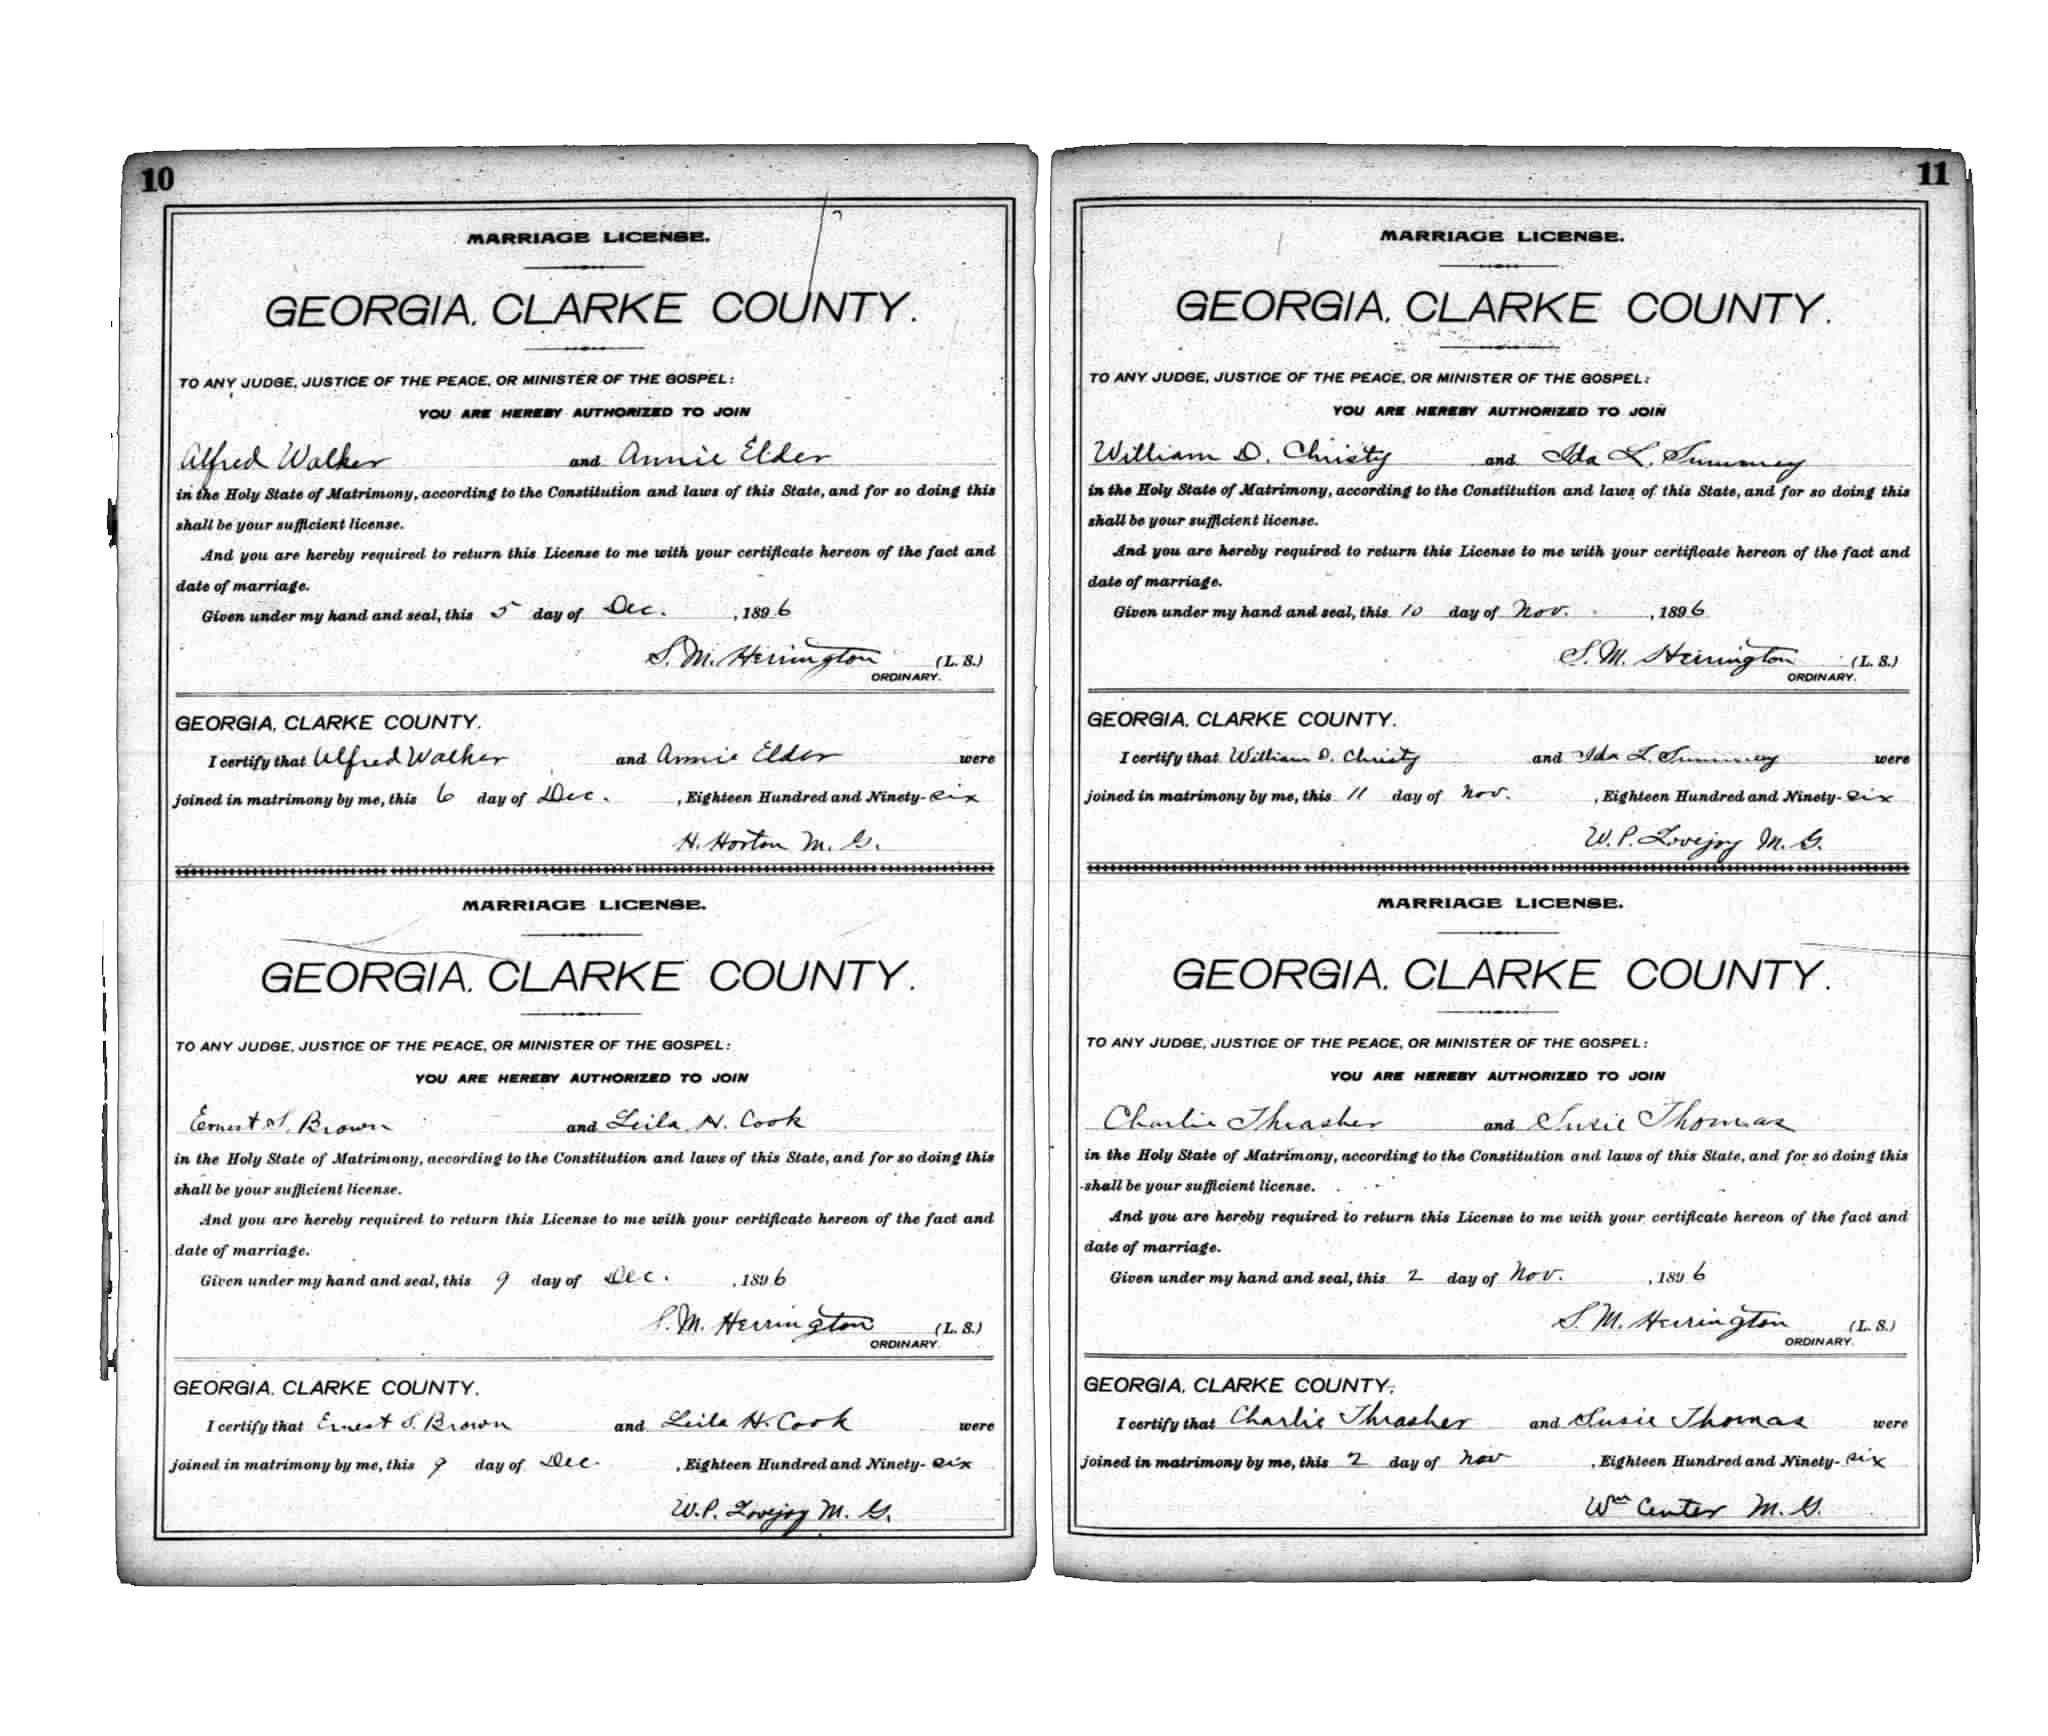 10
MARRIAGE LICENSE.
GEORGIA, CLARKE COUNTY.
TO ANY JUDGE, JUSTICE OF THE PEACE, OR MINISTER OF THE GOSPEL:
YOU ARE HEREBY AUTHORIZED TO JOIN
Alfred Walker and Annie Elder
in the Holy State of Matrimony, according to the Constitution and laws of this State, and for so doing this
shall be your sufficient license.
And you are hereby required to return this License to me with your certificate hereon of the fact and
date of marriage.
Given under my hand and seal, this 5 day of Dec. , 1896
S. M. Herrington (L. S.)
ORDINARY.
GEORGIA, CLARKE COUNTY.
I certify that Alfred Walker and Annie Elder were
joined in matrimony by me, this 6 day of Dec. , Eighteen Hundred and Ninety-six
H. Horton M. G.
MARRIAGE LICENSE.
GEORGIA, CLARKE COUNTY.
TO ANY JUDGE, JUSTICE OF THE PEACE, OR MINISTER OF THE GOSPEL:
YOU ARE HEREBY AUTHORIZED TO JOIN
Ernest S. Brown and Leila H. Cook
in the Holy State of Matrimony, according to the Constitution and laws of this State, and for so doing this
shall be your sufficient license.
And you are hereby required to return this License to me with your certificate hereon of the fact and
date of marriage.
Given under my hand and seal, this 9 day of Dec. , 1896
S. M. Herrington (L. S.)
ORDINARY.
GEORGIA, CLARKE COUNTY.
I certify that Ernest S. Brown and Leila H. Cook were
joined in matrimony by me, this 9 day of Dec. , Eighteen Hundred and Ninety-six
W. P. Lovejoy M. G.
11
MARRIAGE LICENSE.
GEORGIA, CLARKE COUNTY.
TO ANY JUDGE, JUSTICE OF THE PEACE, OR MINISTER OF THE GOSPEL:
YOU ARE HEREBY AUTHORIZED TO JOIN
William D. Christy and Ida L. Summey
in the Holy State of Matrimony, according to the Constitution and laws of this State, and for so doing this
shall be your sufficient license.
And you are hereby required to return this License to me with your certificate hereon of the fact and
date of marriage.
Given under my hand and seal, this 10 day of Nov. , 1896
S. M. Herrington (L. S.)
ORDINARY.
GEORGIA, CLARKE COUNTY.
I certify that William D. Christy and Ida L. Summey were
joined in matrimony by me, this 11 day of Nov. , Eighteen Hundred and Ninety-six
W. P. Lovejoy M. G.
MARRIAGE LICENSE.
GEORGIA, CLARKE COUNTY.
TO ANY JUDGE, JUSTICE OF THE PEACE, OR MINISTER OF THE GOSPEL:
YOU ARE HEREBY AUTHORIZED TO JOIN
Charlie Thrasher and Susie Thomas
in the Holy State of Matrimony, according to the Constitution and laws of this State, and for so doing this
shall be your sufficient license.
And you are hereby required to return this License to me with your certificate hereon of the fact and
date of marriage.
Given under my hand and seal, this 2 day of Nov. , 1896
S. M. Herrington (L. S.)
ORDINARY.
GEORGIA, CLARKE COUNTY.
I certify that Charlie Thrasher and Susie Thomas were
joined in matrimony by me, this 2 day of Nov , Eighteen Hundred and Ninety-six
Wm Center M. G.